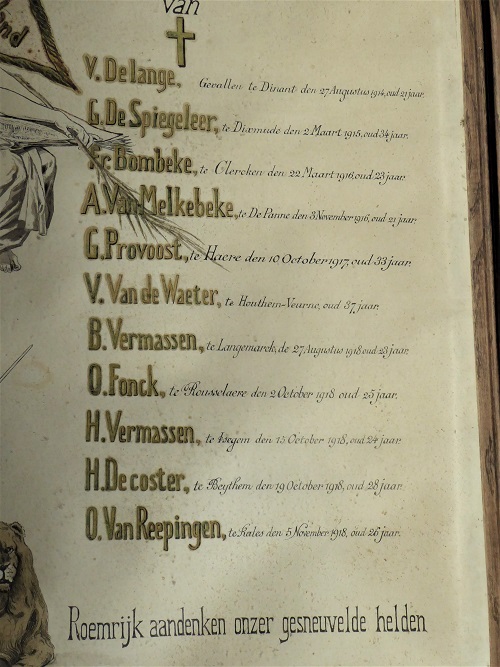 van
nd
V. Delange, Gevallen te Dinant den 27 Augustus 1914, oud 21 jaar.
G. De Spiegeleer, te Dixmude den 2 Maart 1915, oud 34 jaar.
Fr. Bombeke, te Clercken den 22 Maart 1916, oud 23 jaar.
A. Van Melkebeke, te De Panne den 3 November 1916, oud 21 jaar.
G. Provoost, te Haere den 10 October 1917, oud 33 jaar.
V. Van de Waeter, te Houthem-Veurne, oud 37 jaar.
B. Vermassen, te Langemarck, de 27 Augustus 1918 oud 23 jaar.
O. Fonck, te Rousselaere den 2 October 1918 oud 25 jaar.
H. Vermassen, te Isegem den 15 October 1918, oud 24 jaar.
H. De coster, te Beythem den 19 October 1918, oud 28 jaar.
O. Van Reepingen, te Kales den 5 November 1918, oud 26 jaar.
Roemrijk aandenken onzer gesneuvelde helden